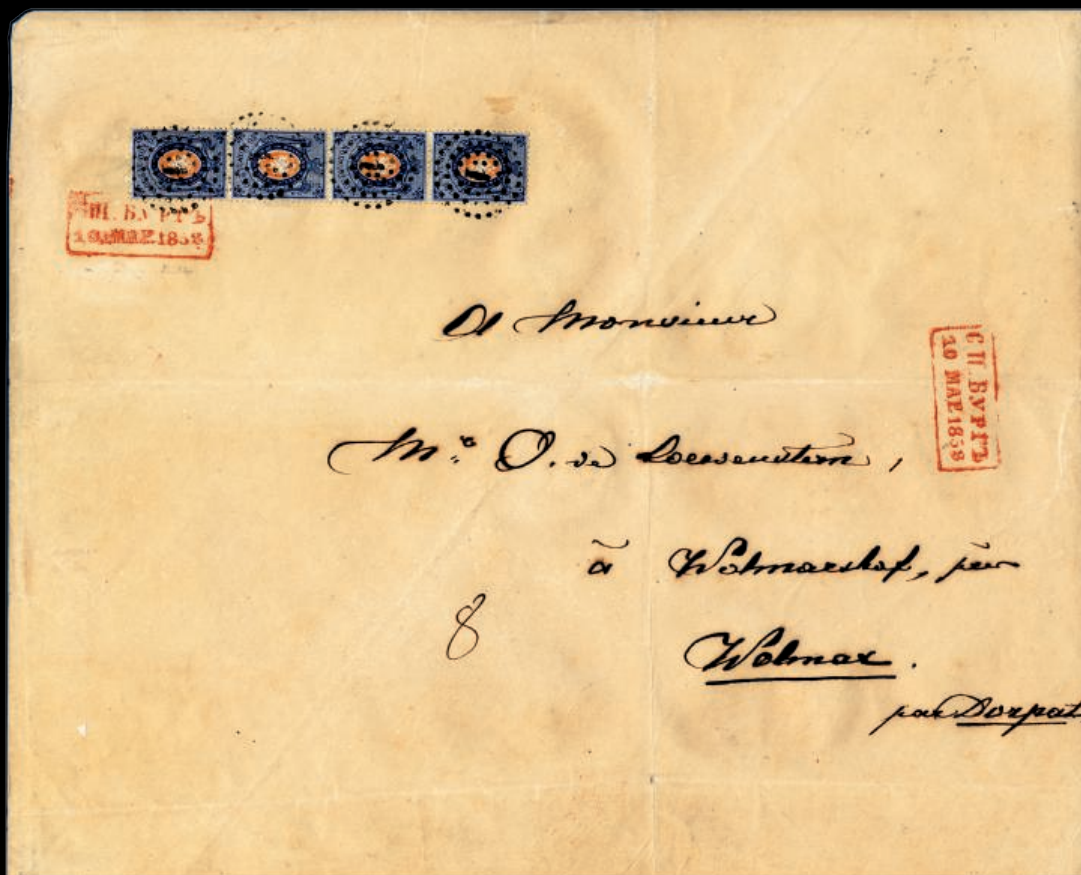 С.П.БУРГЪ
10 МАР.1858
A Monsieur
С П.БУРГЪ
10 МАР.1858
Mr. O. de Loewenstern,
à Wolmarshof, per
8
Wolmar.
par Dorpat